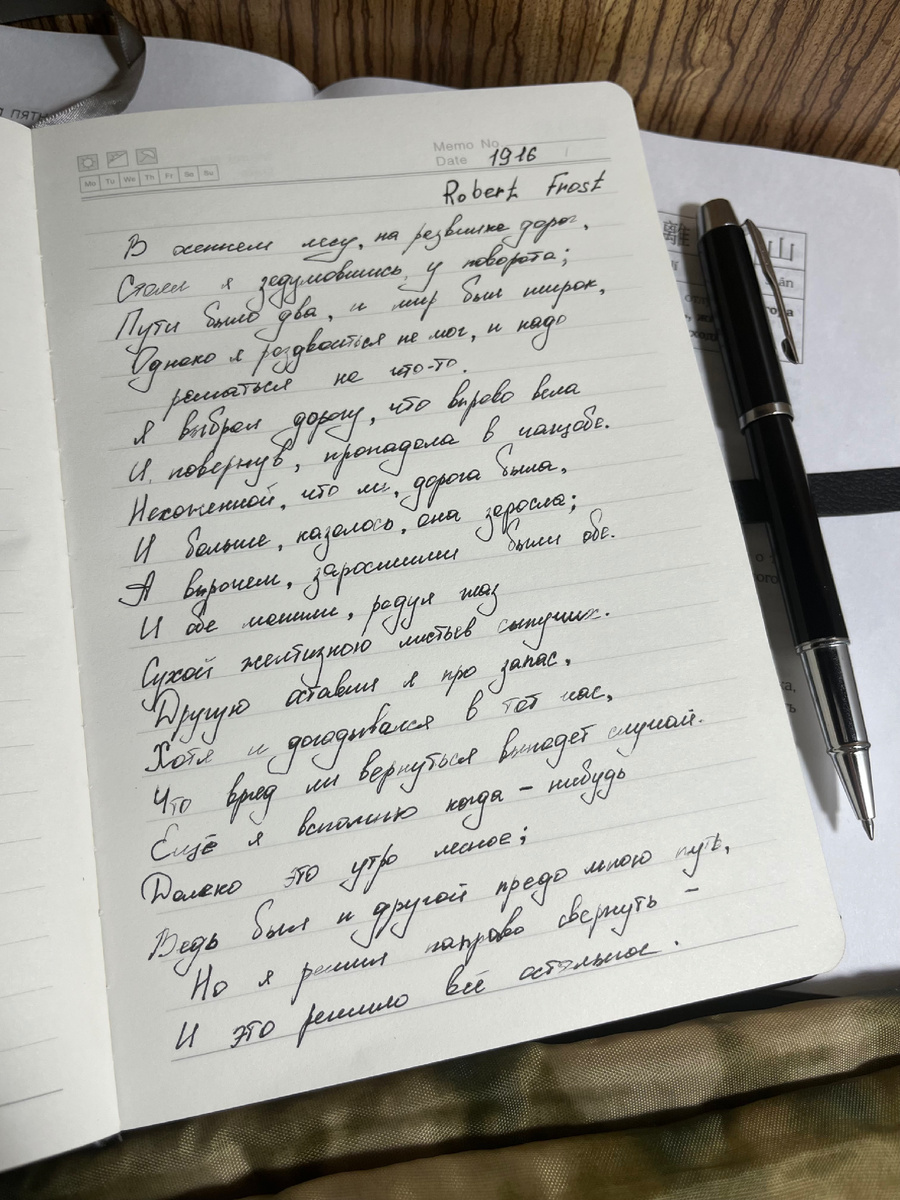 п пятн
Memo No.
Date 1916
Mo Tu We Th Fr Sa Su
Robert Frost
В осеннем лесу, на развилке дорог,
Стоял я задумавшись, у поворота;
Пути было два, и мир был широк,
Однако я раздвоиться не мог, и надо
решаться на что-то.
Я выбрал дорогу, что вправо вела
И, повернув, пропадала в чащобе.
Нехоженной, что ли, дорога была,
И больше, казалось, она заросла;
А впрочем, заросшими были обе.
И обе манили, радуя глаз
Сухой желтизною листьев сыпучих.
Другую оставил я про запас,
Хотя и догадывался в тот час,
Что вряд ли вернуться выпадет случай.
Ещё я вспомню когда-нибудь
Далёко это утро лесное;
Ведь был и другой предо мною путь,
Но я решил направо свернуть –
И это решило всё остальное.
離 山